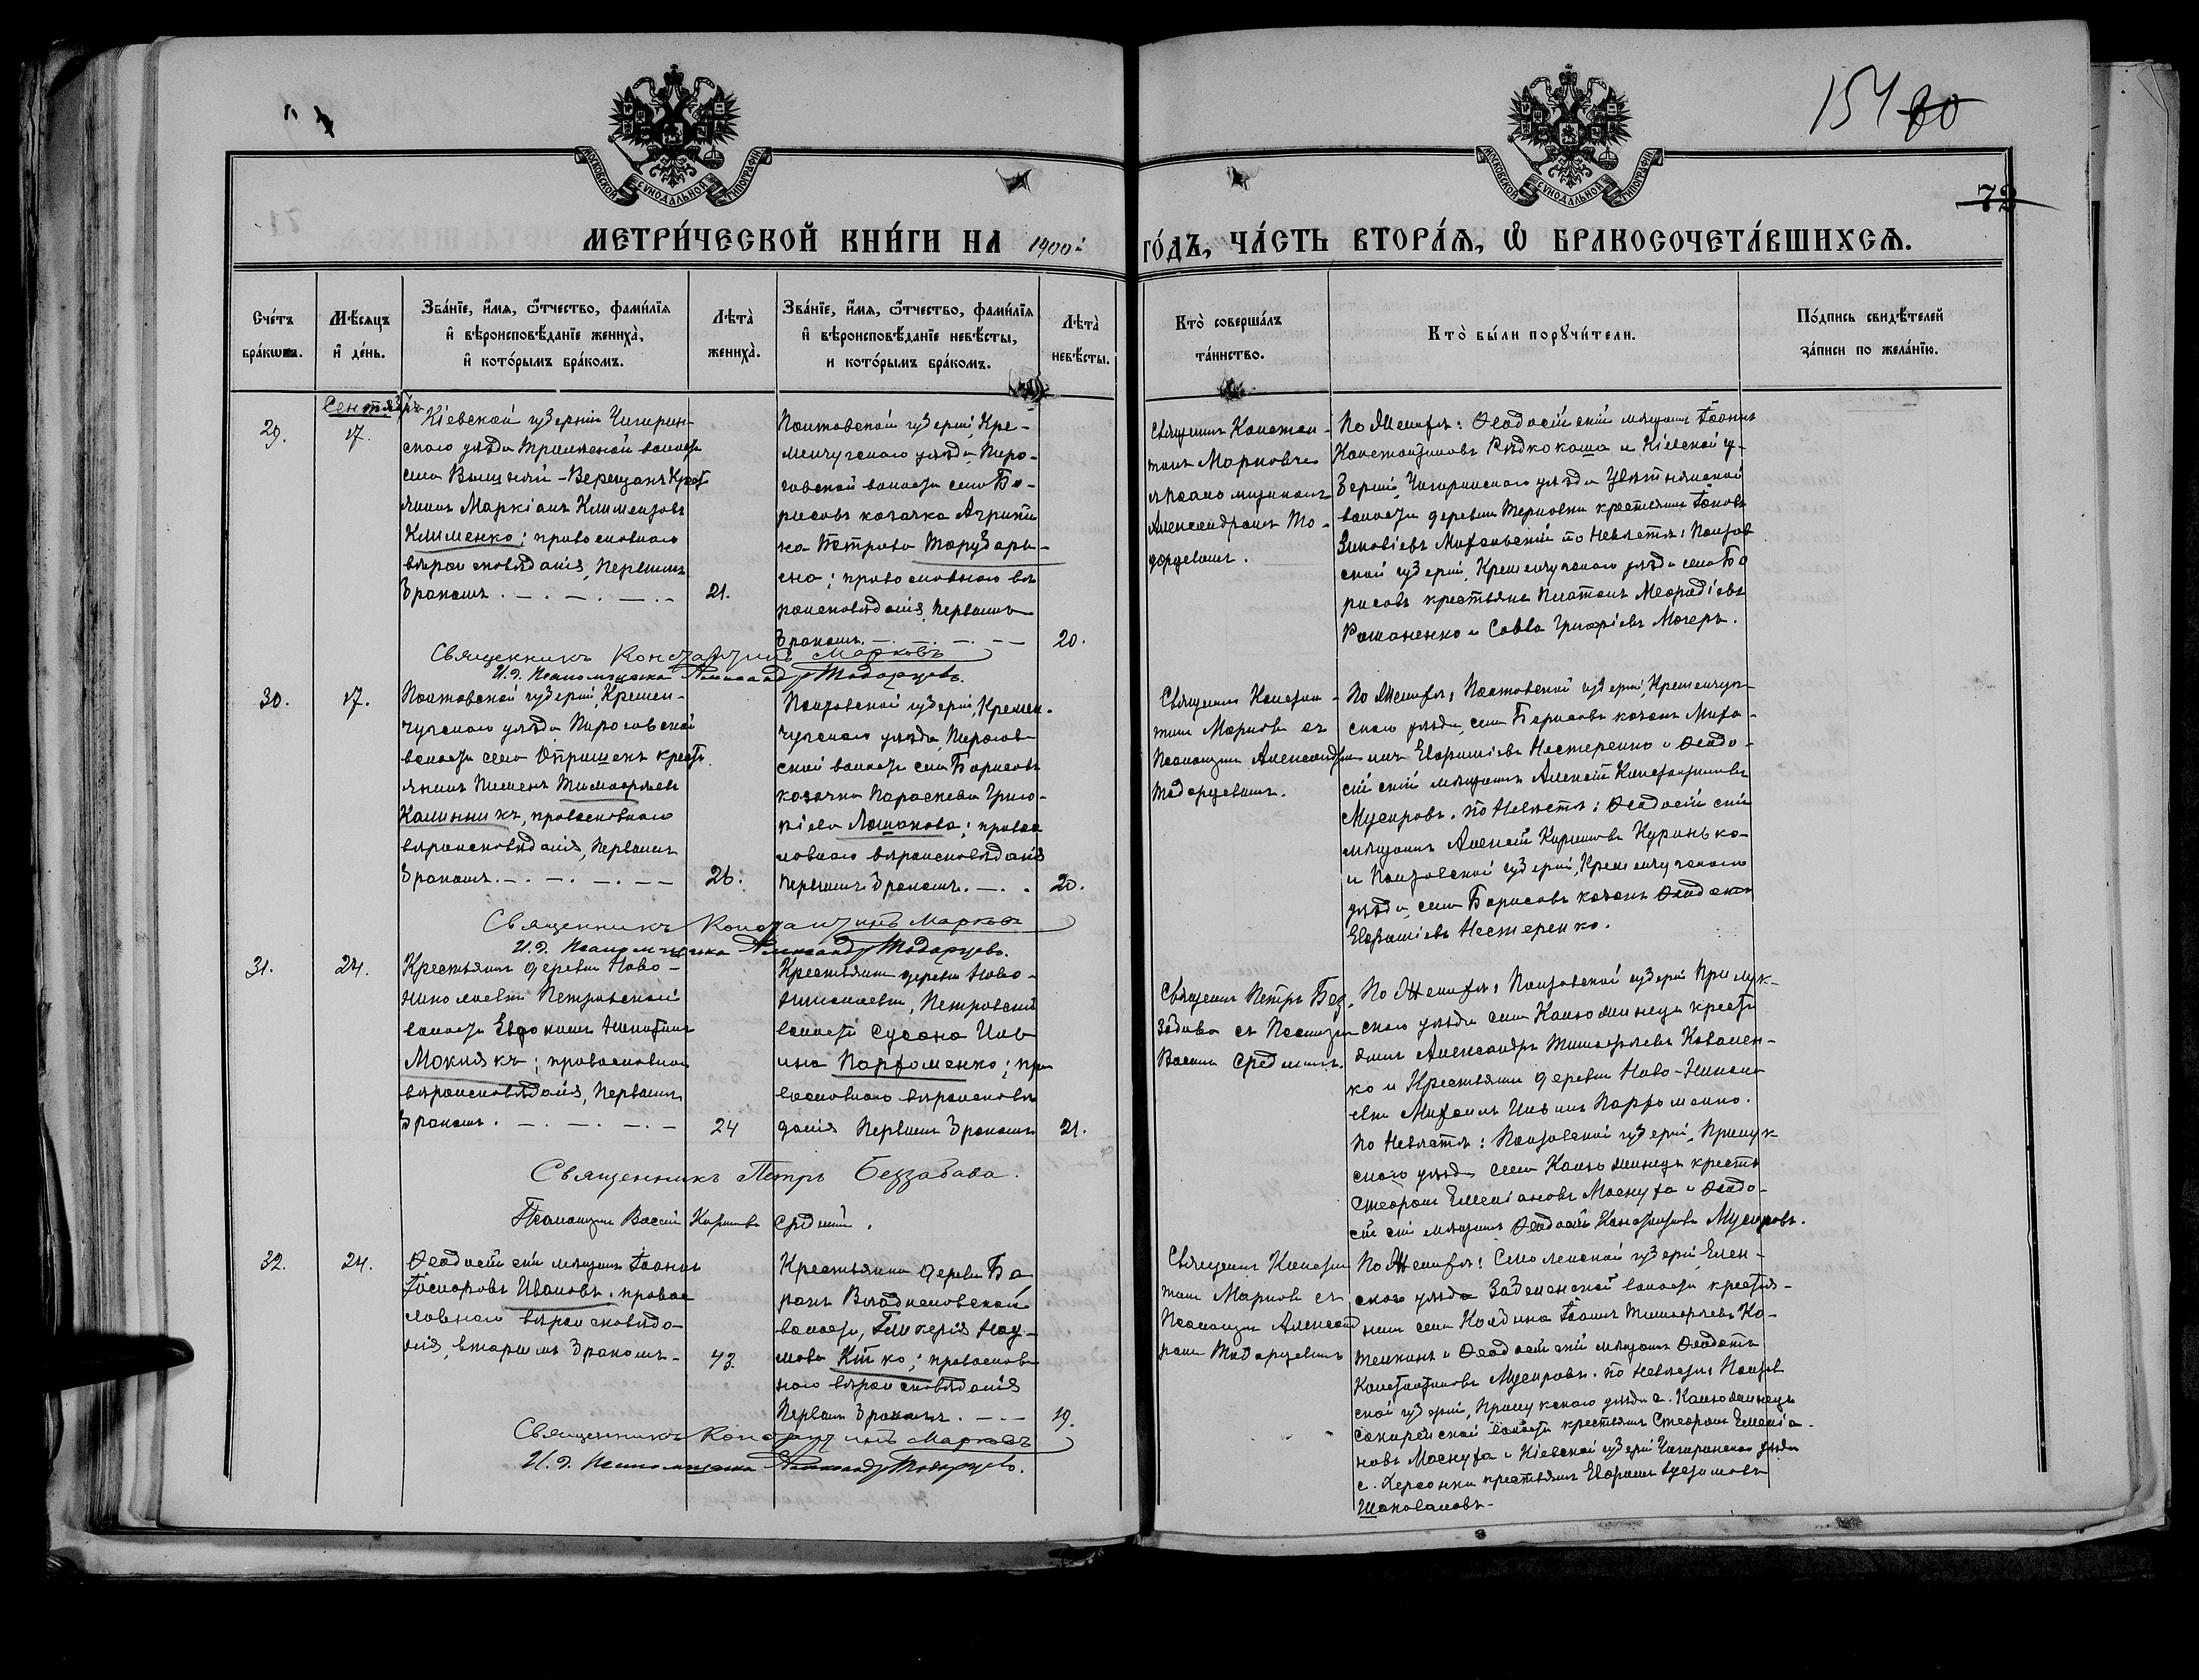 154 80
72
МОСКОВСКОЙ СѴНОДАЛЬНОЙ ТИПОГРАФІИ
МОСКОВСКОЙ СѴНОДАЛЬНОЙ ТИПОГРАФІИ
МЕТРИ́ЧЕСКОЙ КНИ́ГИ НА 1900й ГО́ДЪ, ЧА́СТЬ ВТОРА́Я, Ѡ҆ БРАКОСОЧЕТА́ВШИХСЯ.
Сче́тъ
бра́кѡвъ.
Мѣ́сяцъ
и҆ де́нь.
Зва́нїе, и҆́мя, ѻ҆́тчество, фамѝлїя
и҆ вѣроисповѣ́данїе жениха̀,
и҆ кото́рымъ бра́комъ.
Лѣта̀
жениха̀.
Зва́нїе, и҆́мя, ѻ҆́тчество, фамѝлїя
и҆ вѣроисповѣ́данїе невѣ́сты,
и кото́рымъ бра́комъ.
Лѣта̀
невѣ́сты.
Кто̀ соверша́лъ
та́инство.
Кто̀ бы́ли порꙋчи́тели.
По́дпись свидѣ́телей
за́писи по жела́нїю.
Сентябрь
29.
17.
Кіевской губерніи Чигирин-
скаго уѣзда волости
села Вершацъ Крест
янинъ Маркіанъ Климентовъ
Клименко; православнаго
вѣроисповѣданія, первымъ
бракомъ
21.
Полтавской губерніи, Кре-
менчугскаго уѣзда, Пиро-
говской волости села Бо-
рисовъ козачка Агрипи
на Петрова
; православнаго вѣ
роисповѣданія, первымъ
бракомъ
20.
Священникъ Констан-
тинъ Марковъ съ
Псаломщикомъ
Александромъ То-
дорцевымъ.
По Женихѣ: Ѳеодосійскій мѣщанинъ Іоаннъ
Константиновъ Рѣдкокаша и Кіевской гу-
берніи, Чигиринскаго уѣзда Цвѣтнянской
волости деревни Терновки крестьянинъ Іаковъ
Зиновіевъ по Невѣстѣ: Полтав
ской губерніи, Кременчугскаго уѣзда села Бо
рисовъ крестьяне Платонъ
Романенко и Савва
Священникъ Константинъ Марковъ
И.д. Псаломщика Александръ Тодорцевъ.
30.
17.
Полтавской губерніи, Кремен-
чугскаго уѣзда, Пироговской
волости села Опришекъ крест
янинъ Пименъ Тимоѳеевъ
Калинникъ, православнаго
вѣроисповѣданія, первымъ
бракомъ
26.
Полтавской губерніи, Кремен-
чугскаго уѣзда, Пирогов
ской волости села Борисовъ
козачка Параскева Григо-
ріева Лошакова; правос
лавнаго вѣроисповѣданія
первымъ бракомъ
20.
Священникъ Констан-
тинъ Марковъ съ
Псаломщик Александром
Тодорцевымъ.
По Женихѣ, Полтавской губерніи, Кременчуг-
скаго уѣзда, села Борисовъ козакъ Миха-
илъ Евѳиміевъ Нестеренко и Ѳеодо-
сійскій мѣщанинъ Алексѣй Константиновъ
Мусировъ. По Невѣстѣ: Ѳеодосійскій
мѣщанинъ Алексѣй Кириловъ Куринько-
и Полтавской губерніи, Кременчугскаго
уѣзда, села Борисовъ козакъ Ѳеодотъ
Евѳиміевъ Нестеренко.
Священникъ Константинъ Марковъ
И.д. Псаломщика Александръ Тодорцевъ.
31.
24.
Крестьянинъ деревни Ново-
николаевки Петровской
волости Евдокимъ Никитинъ
Мокиякъ; православнаго
вѣроисповѣданія, первымъ
бракомъ
24
Крестьянка деревни Ново-
николаевки, Петровской
волости Сусана Иль
ина Парфоменко; пра
вославнаго вѣроисповѣ
данія первымъ бракомъ
21.
Священникъ Петръ Без-
забава съ Псаломщи
Василіемъ Среднимъ.
По Женихѣ, Полтавской губерніи Прилук-
скаго уѣзда села крестья
нинъ Александръ Тимоѳеевъ Ковален-
ко и Крестьянинъ деревни Ново-Никола
евки Михаилъ Ильинъ Парфоменко.
По Невѣстѣ: Полтавской губерніи, Прилук-
скаго уѣзда села крестья
Стефанъ Емеліановъ Москуха и Ѳеодо-
сійскій мѣщанинъ Ѳеодосій Константиновъ Мусировъ.
Священникъ Петръ Беззабава.
Псаломщикъ Василій Кириловъ Средній.
32.
24.
Ѳеодосійскій мѣщанинъ Іоаннъ
Іосифовъ Ивановъ, правос
лавнаго вѣроисповѣда-
нія, вторымъ бракомъ
43
Крестьянка деревни Ба
ранъ Владиславовской
волости, Гликерія Нау-
мова Кійко; православ
наго вѣроисповѣданія
первымъ бракомъ
19.
Священникъ Констан
тинъ Марковъ съ
Псаломщик Александ
ромъ Тодорцевымъ
По Женихѣ: Смоленской губерніи, Елен-
скаго уѣзда волости крестья-
нинъ села Іоаннъ Тимоѳеевъ
и Ѳеодосійскій мѣщанинъ Ѳеодотъ
Константиновъ Мусировъ. По Невѣстѣ: Полтав
ской губерніи, Прилукскаго уѣзда с.
волости крестьянинъ Стефанъ Емеліа-
новъ Москуха и Кіевской губерніи Чигиринскаго уѣзда
с. Херсонки крестьянинъ Евфимъ
Шаповаловъ.
Священникъ Константинъ Марковъ
И.д. Псаломщика Александръ Тодорцевъ.